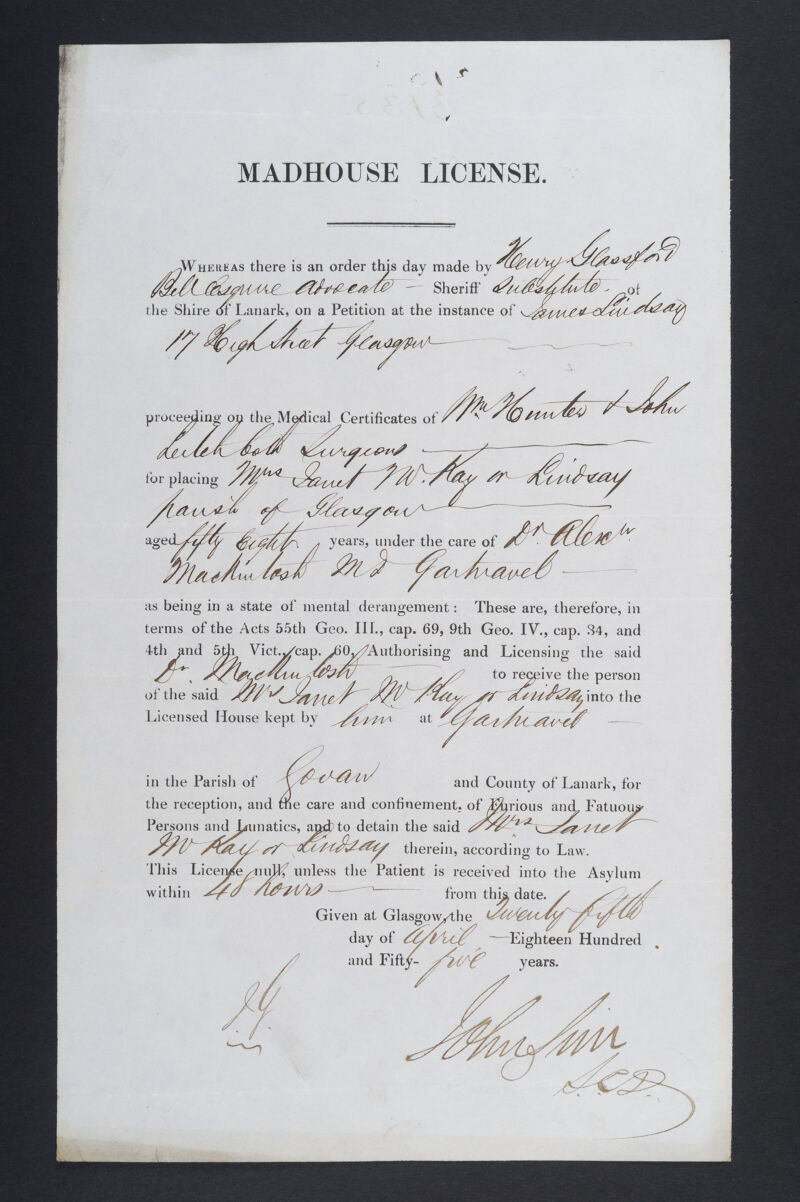 MADHOUSE LICENSE.
WHEREAS there is an order this day made by Henry Glassford
Bell Esquire Advocate — Sheriff Substitute of
the Shire of Lanark, on a Petition at the instance of James Lindsay
17 High Street Glasgow
proceeding on the Medical Certificates of Wm Hunter & John
Leitch both Surgeons
for placing Mrs Janet McKay or Lindsay
parish of Glasgow
aged fifty eight years, under the care of Dr Alexr
Mackintosh MD Gartnavel
as being in a state of mental derangement: These are, therefore, in
terms of the Acts 55th Geo. III., cap. 69, 9th Geo. IV., cap. 34, and
4th and 5th Vict., cap. 60, Authorising and Licensing the said
Dr. Mackintosh to receive the person
of the said Mrs Janet McKay or Lindsay into the
Licensed House kept by him at Gartnavel
in the Parish of Govan and County of Lanark, for
the reception, and the care and confinement, of Furious and Fatuous
Persons and Lunatics, and to detain the said Mrs Janet
McKay or Lindsay therein, according to Law.
This License null, unless the Patient is received into the Asylum
within 48 hours from this date.
Given at Glasgow, the Twenty fifth
day of April — Eighteen Hundred
and Fifty-five years.